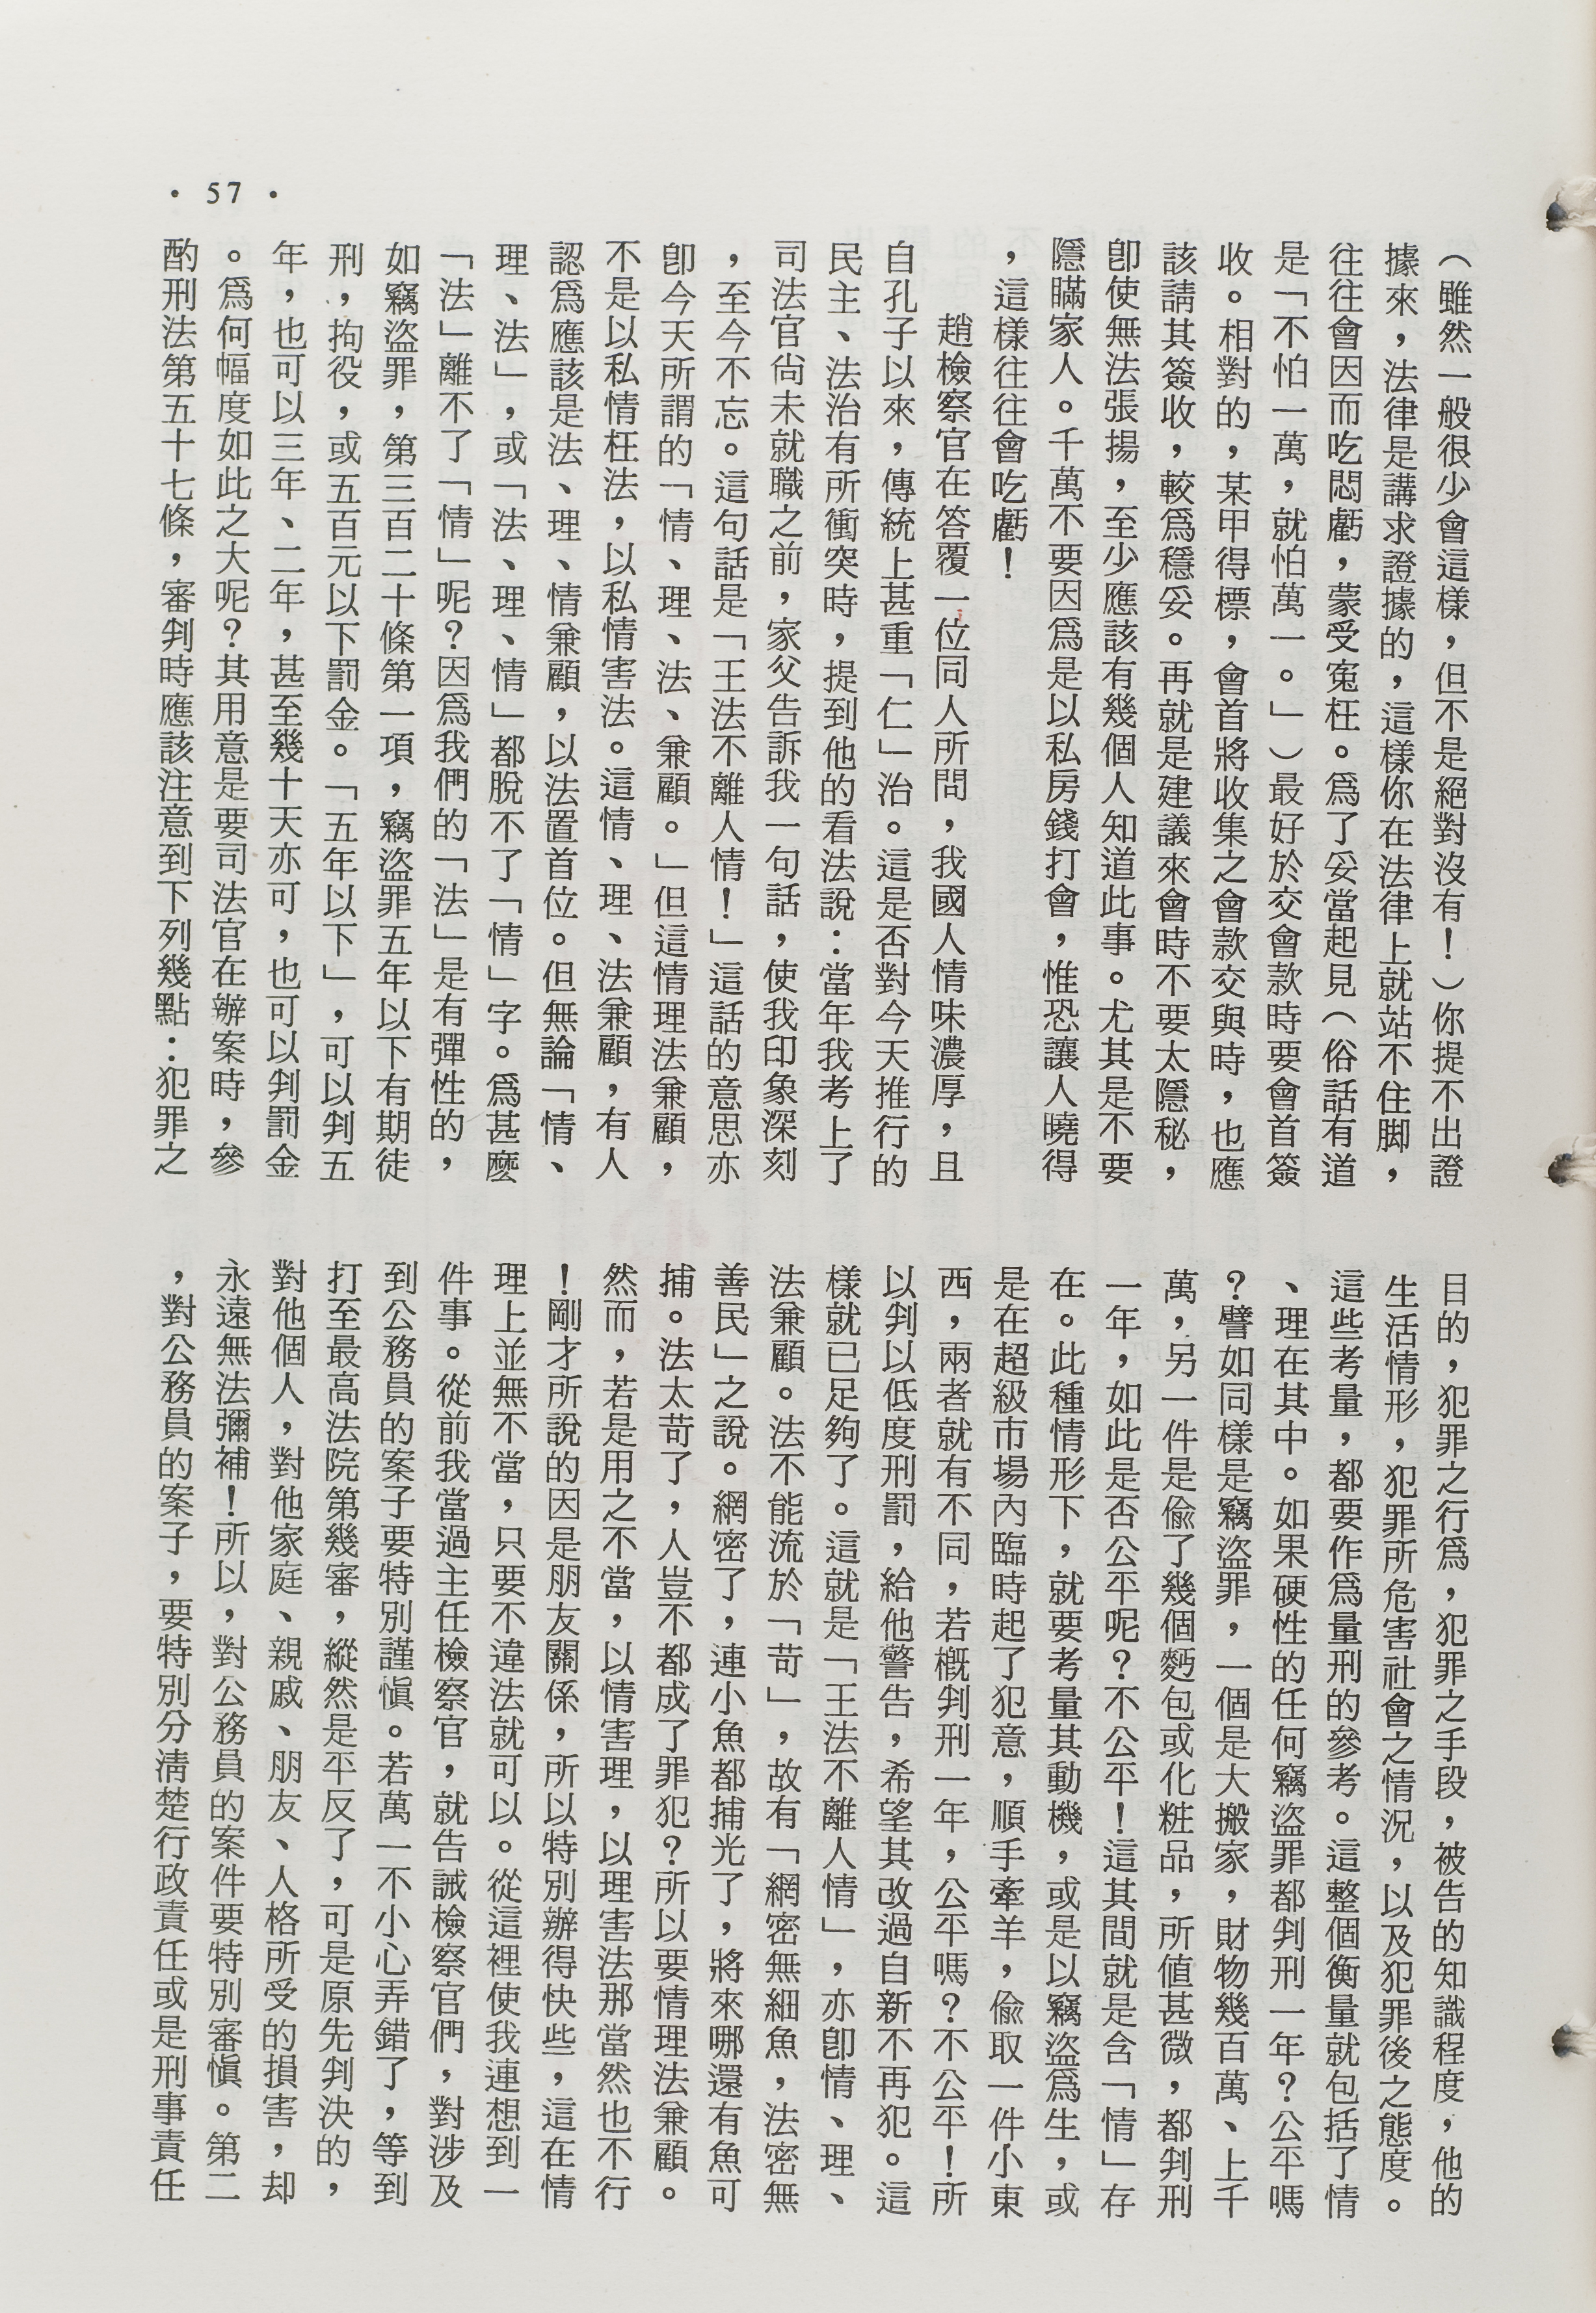 • 57 •
（雖然一般很少會這樣，但不是絕對沒有！）你提不出證
據來，法律是講求證據的，這樣你在法律上就站不住脚，
往往會因而吃悶虧，蒙受寃枉。爲了妥當起見（俗話有道
是「不怕一萬，就怕萬一。」）最好於交會款時要會首簽
收。相對的，某甲得標，會首將收集之會款交與時，也應
該請其簽收，較爲穩妥。再就是建議來會時不要太隱秘，
卽使無法張揚，至少應該有幾個人知道此事。尤其是不要
隱瞞家人。千萬不要因爲是以私房錢打會，惟恐讓人曉得
，這樣往往會吃虧！
趙檢察官在答覆一位同人所問，我國人情味濃厚，且
自孔子以來，傳統上甚重「仁」治。這是否對今天推行的
民主、法治有所衝突時，提到他的看法說：當年我考上了
司法官尙未就職之前，家父告訴我一句話，使我印象深刻
，至今不忘。這句話是「王法不離人情！」這話的意思亦
卽今天所謂的「情、理、法、兼顧。」但這情理法兼顧，
不是以私情枉法，以私情害法。這情、理、法兼顧，有人
認爲應該是法、理、情兼顧，以法置首位。但無論「情、
理、法」，或「法、理、情」都脫不了「情」字。爲甚麼
「法」離不了「情」呢？因爲我們的「法」是有彈性的，
如竊盜罪，第三百二十條第一項，竊盜罪五年以下有期徒
刑，拘役，或五百元以下罰金。「五年以下」，可以判五
年，也可以三年、二年，甚至幾十天亦可，也可以判罰金
。爲何幅度如此之大呢？其用意是要司法官在辦案時，參
酌刑法第五十七條，審判時應該注意到下列幾點：犯罪之
目的，犯罪之行爲，犯罪之手段，被告的知識程度，他的
生活情形，犯罪所危害社會之情況，以及犯罪後之態度。
這些考量，都要作爲量刑的參考。這整個衡量就包括了情
、理在其中。如果硬性的任何竊盜罪都判刑一年？公平嗎
？譬如同樣是竊盜罪，一個是大搬家，財物幾百萬、上千
萬，另一件是偸了幾個麪包或化粧品，所値甚微，都判刑
一年，如此是否公平呢？不公平！這其間就是含「情」存
在。此種情形下，就要考量其動機，或是以竊盜爲生，或
是在超級市場內臨時起了犯意，順手牽羊，偸取一件小東
西，兩者就有不同，若槪判刑一年，公平嗎？不公平！所
以判以低度刑罰，給他警告，希望其改過自新不再犯。這
樣就已足夠了。這就是「王法不離人情」，亦卽情、理、
法兼顧。法不能流於「苛」，故有「網密無細魚，法密無
善民」之說。網密了，連小魚都捕光了，將來哪還有魚可
捕。法太苛了，人豈不都成了罪犯？所以要情理法兼顧。
然而，若是用之不當，以情害理，以理害法那當然也不行
！剛才所說的因是朋友關係，所以特別辦得快些，這在情
理上並無不當，只要不違法就可以。從這裡使我連想到一
件事。從前我當過主任檢察官，就告誡檢察官們，對涉及
到公務員的案子要特別謹愼。若萬一不小心弄錯了，等到
打至最高法院第幾審，縱然是平反了，可是原先判決的，
對他個人，對他家庭、親戚、朋友、人格所受的損害，却
永遠無法彌補！所以，對公務員的案件要特別審愼。第二
，對公務員的案子，要特別分淸楚行政責任或是刑事責任